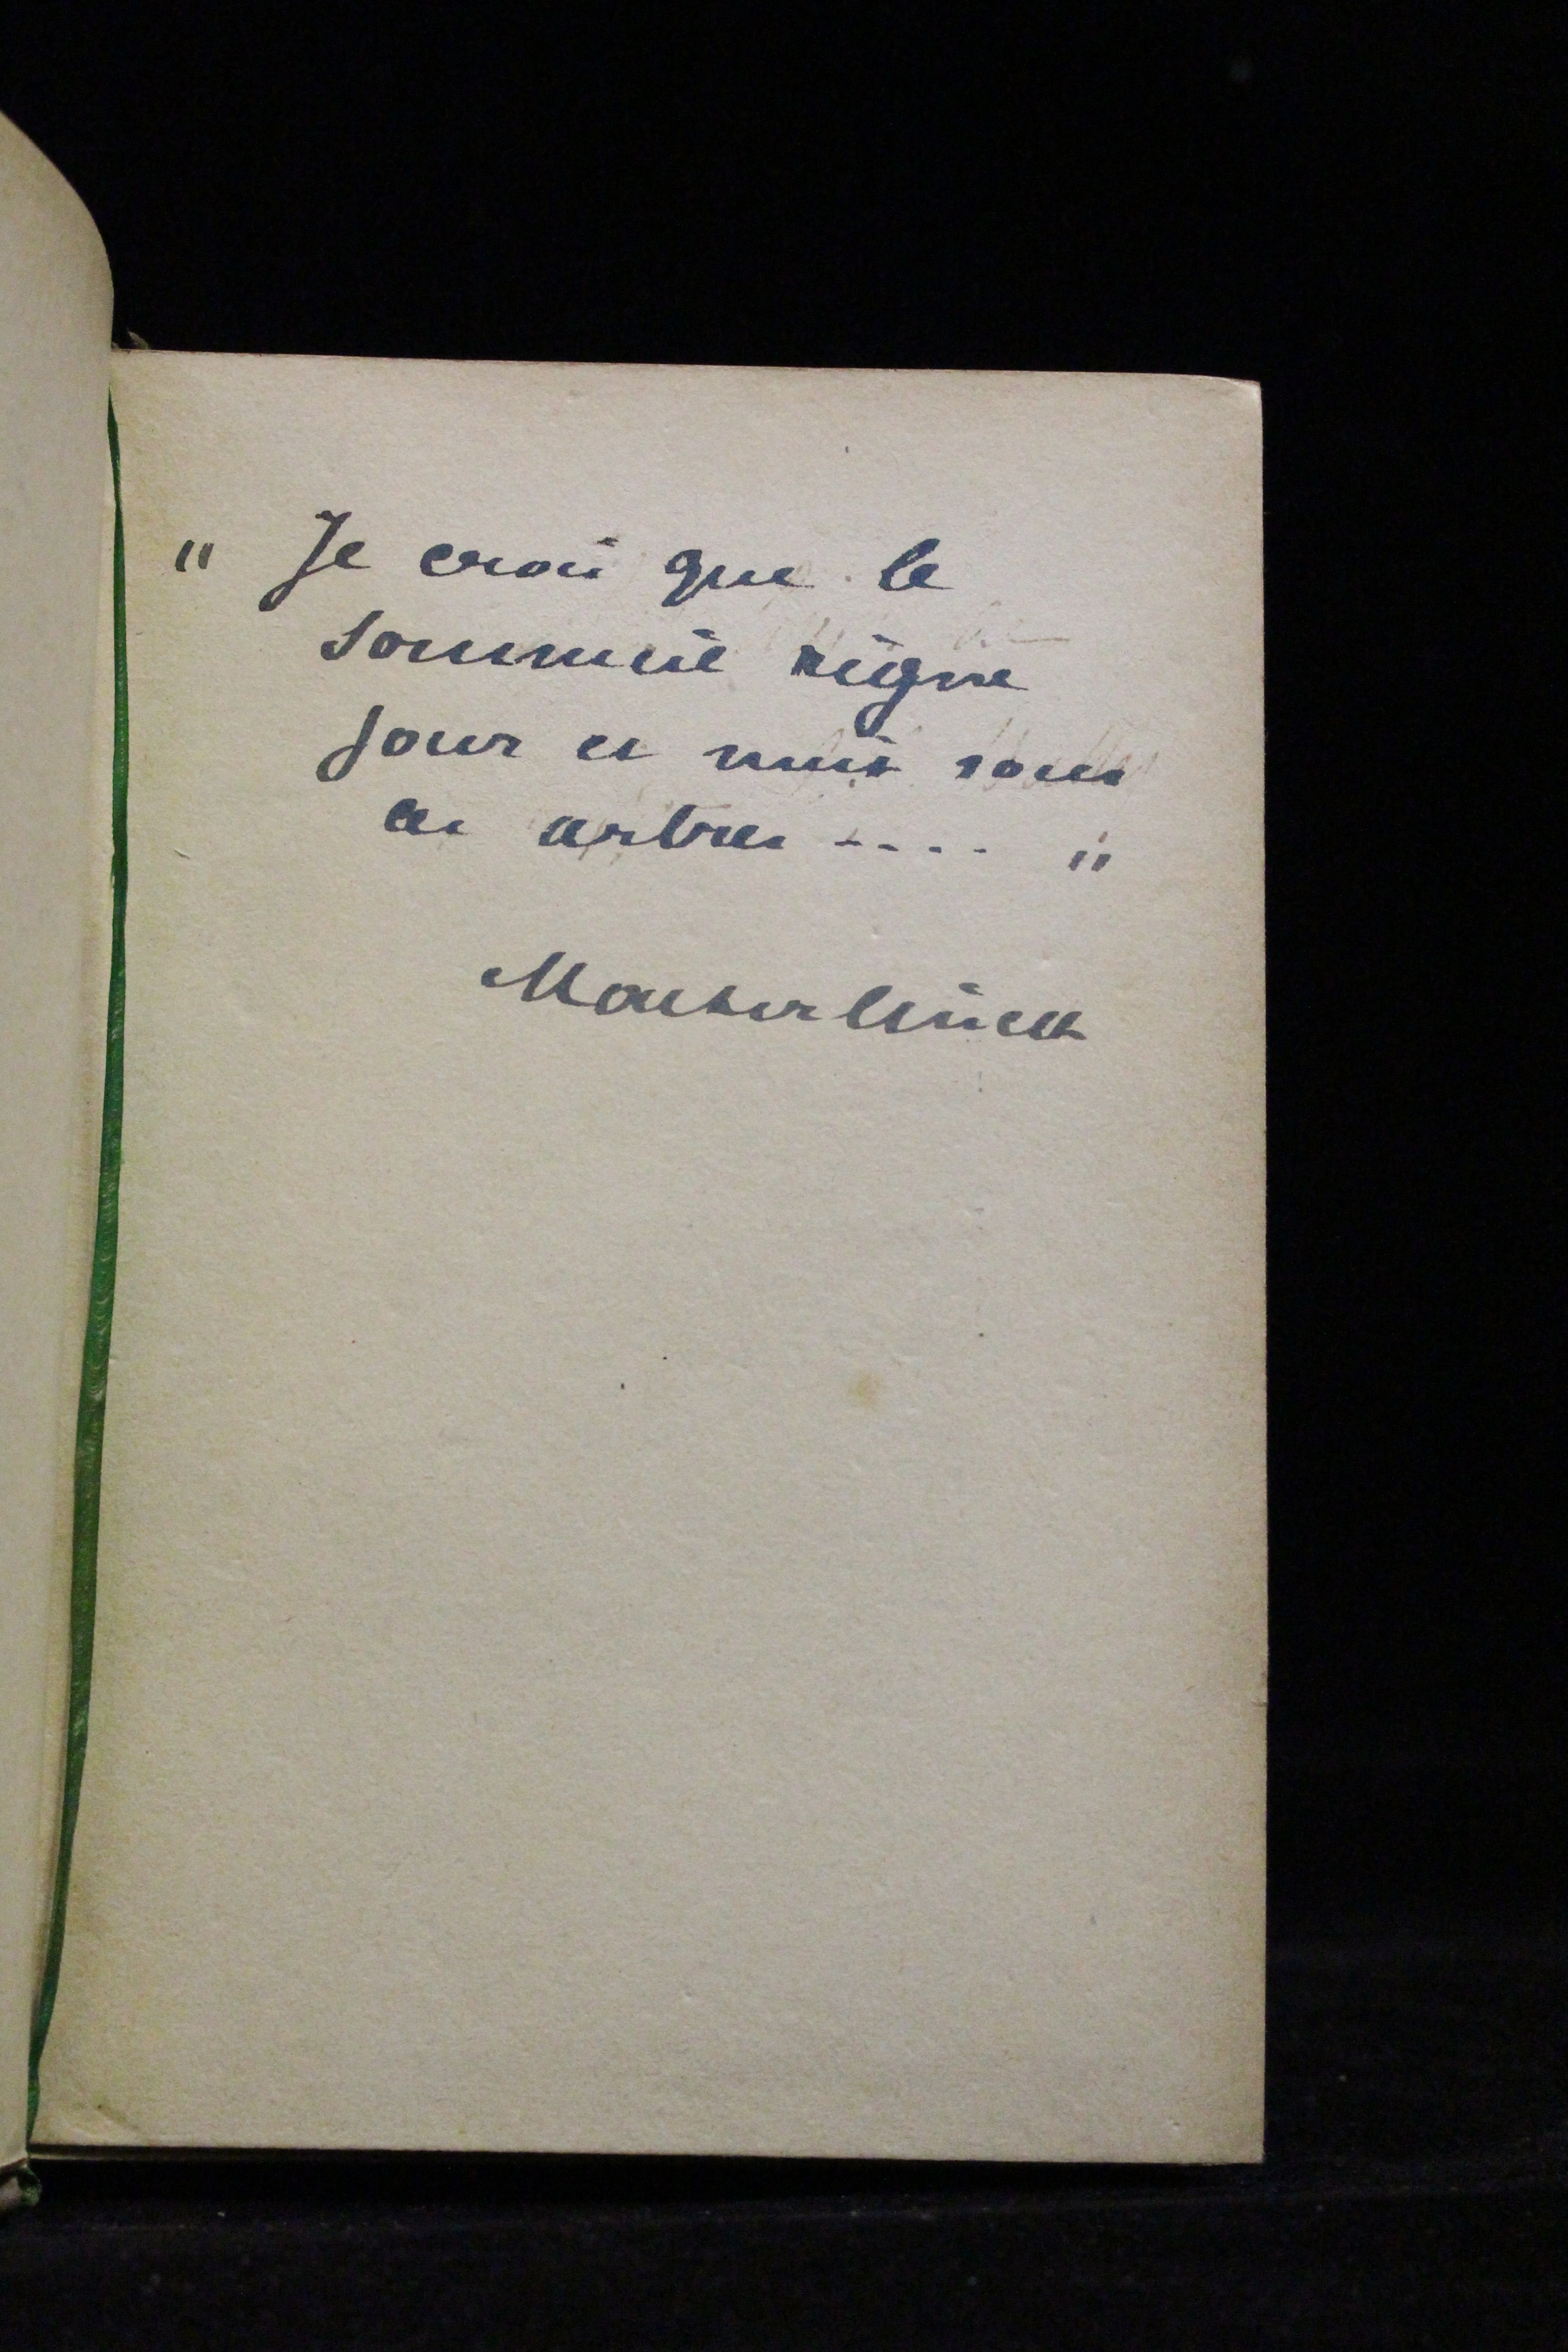 " Je crois que le
sommeil règne
jour et nuit sous
les arbres .... "
Maeterlinck